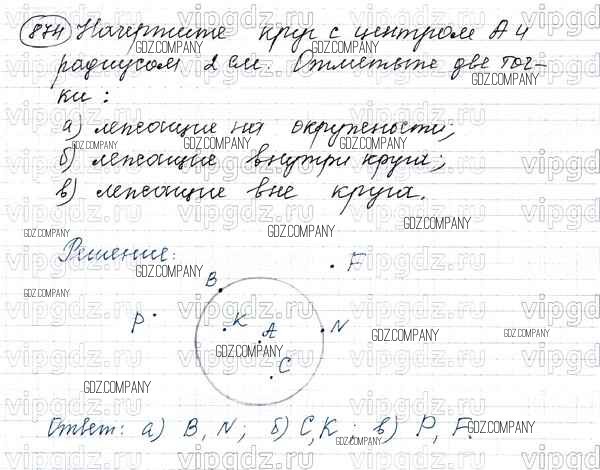 874 Начертите круг с центром А и
радиусом 2 см. Отметьте две точ-
ки:
а) лежащие на окружности;
б) лежащие внутри круга;
в) лежащие вне круга.
Решение:
F
B
P
K
A
N
C
Ответ: а) B, N; б) C, K; в) P, F.
vipgdz.ru
GDZ.COMPANY